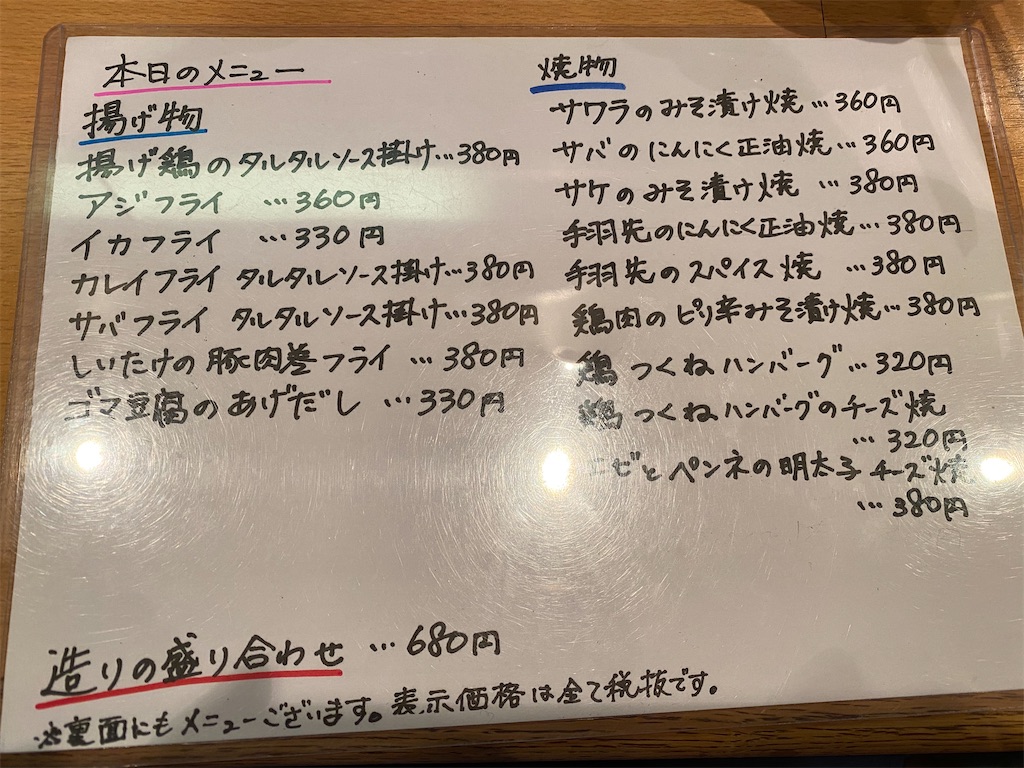 本日のメニュー
揚げ物
揚げ鶏のタルタルソース掛け…380円
アジフライ …360円
イカフライ …330円
カレイフライ タルタルソース掛け…380円
サバフライ タルタルソース掛け…380円
しいたけの豚肉巻フライ …380円
ゴマ豆腐のあげだし …330円
焼物
サワラのみそ漬け焼 …360円
サバのにんにく正油焼 …360円
サケのみそ漬け焼 …380円
手羽先のにんにく正油焼…380円
手羽先のスパイス焼 …380円
鶏肉のピリ辛みそ漬け焼…380円
鶏つくねハンバーグ …320円
鶏つくねハンバーグのチーズ焼
…320円
エビとペンネの明太子チーズ焼
…380円
造りの盛り合わせ …680円
※裏面にもメニューございます。表示価格は全て税抜です。